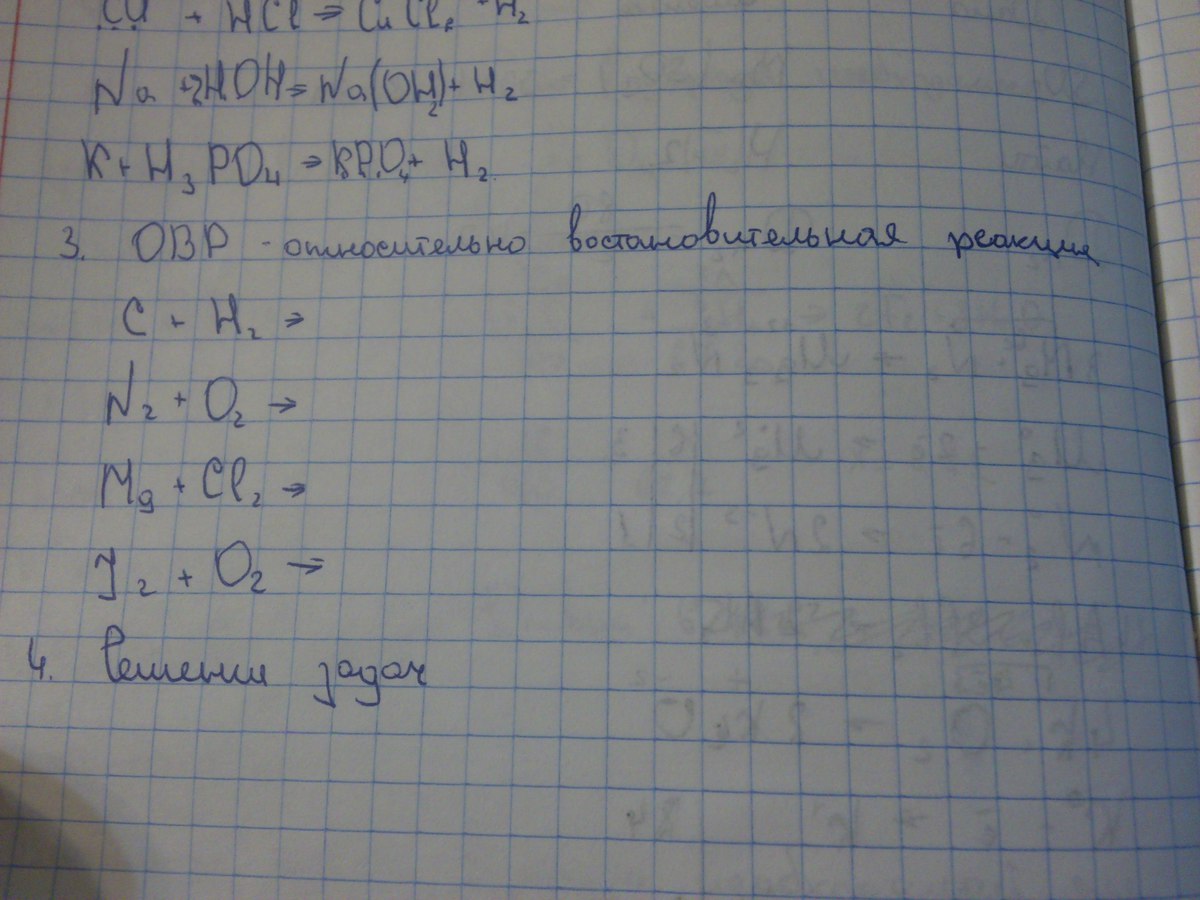 Cu + HCl ⇒ CuCl₂ + H₂
Na + 2HOH ⇒ Na(OH)₂ + H₂
K + H₃PO₄ ⇒ KPO₄ + H₂
3. ОВР - относительно востановительная реакция
C + H₂ ⇒
N₂ + O₂ →
Mg + Cl₂ ⇒
J₂ + O₂ ⇒
4. Решении задач